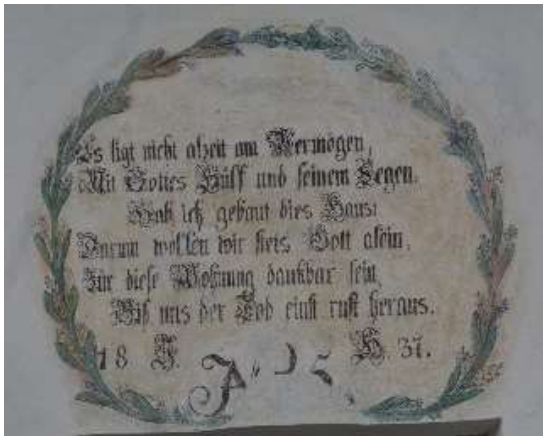 Es ligt nicht alzeit am Vermögen,
Mit Gottes Hülf und seinem Segen.
Hab ich gebaut dies Haus:
Darum wollen wir stets Gott alein,
Für diese Wohnung dankbar sein
Biß uns der Tod einst ruft heraus.
18 J. H. 31.